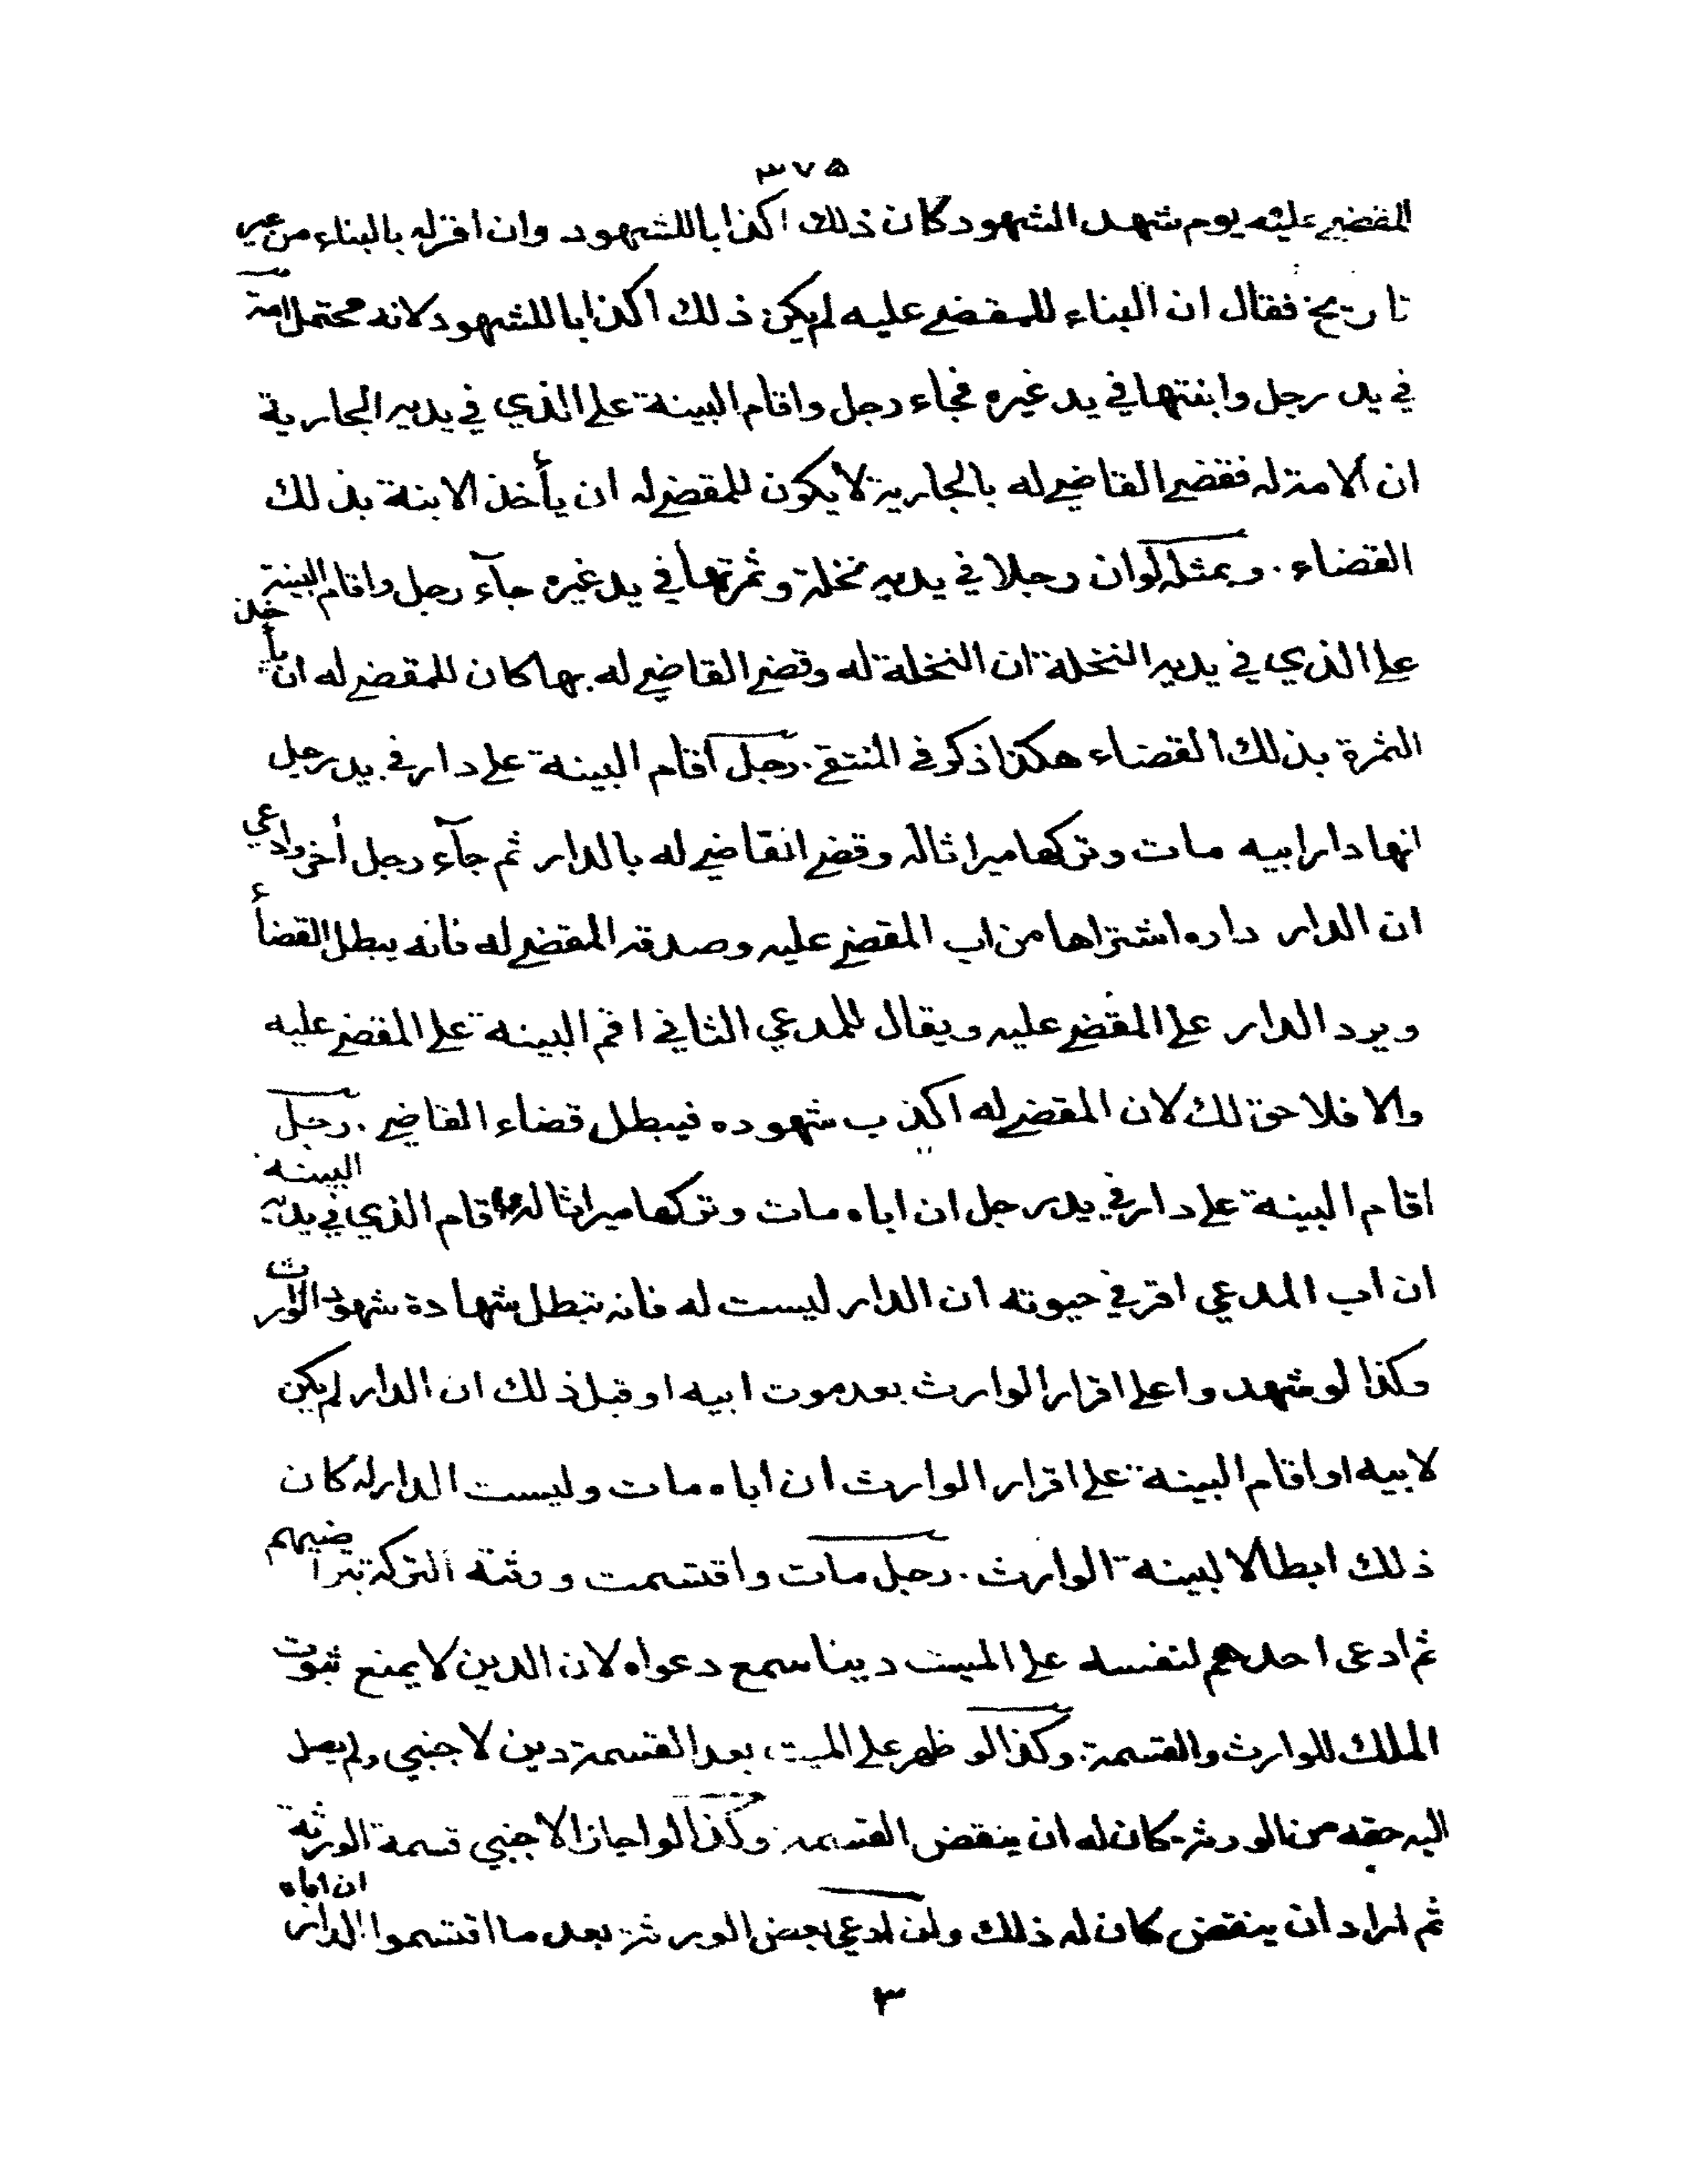 ٣٧٥
المقضي عليه يوم شهد الشهود كان ذلك اكذابا للشهود وان اقر له بالبناء من غير
تاريخ فقال ان البناء للمقضي عليه لم يكن ذلك اكذابا للشهود لانه محتمل امة
في يد رجل وابنتها في يد غيره فجاء رجل واقام البينة على الذي في يديه الجارية
ان الامة له فقضى القاضي له بالجارية لا يكون للمقضي له ان يأخذ الابنة بذلك
القضاء . وبمثله لو ان رجلا في يديه نخلة وثمرتها في يد غيره جآء رجل واقام البينة
على الذي في يديه النخلة ان النخلة له وقضى القاضي له بها كان للمقضي له ان يأخذ
الثمرة بذلك القضاء هكذا ذكر في المنتقى . رجل اقام البينة على دار في يد رجل
انها دار ابيه مات وتركها ميراثا له وقضى القاضي له بالدار ثم جآء رجل أخر وادعي
ان الدار داره اشتراها من اب المقضي عليه وصدقه المقضي له فانه يبطل القضأء
ويرد الدار على المقضي عليه ويقال للمدعي الثاني اقم البينة على المقضي عليه
والا فلا حق لك لان المقضي له اكذب شهوده فيبطل قضاء القاضي . رجل
اقام البينة على دار في يد رجل ان اباه مات وتركها ميراثا له واقام الذي في يديه البينه
ان اب المدعي اقر في حيوته ان الدار ليست له فانه تبطل شهادة شهود الوارث
وكذا لو شهدوا على اقرار الوارث بعد موت ابيه او قبل ذلك ان الدار لم يكن
لابيه او اقام البينة على اقرار الوارث ان اباه مات وليست الدار له كان
ذلك ابطالا لبينة الوارث . رجل مات واقتسمت ورثته التركة بتراضيهم
ثم ادعى احدهم لنفسه على الميت دينا سمع دعواه لان الدين لا يمنع ثبوت
الملك للوارث والقسمة . وكذا لو ظهر على الميت بعد القسمة دين لاجنبي ولم يصل
اليه حقه من الورثة كان له ان ينقض القسمة وكذا لو اجاز الاجنبي قسمة الورثة
ثم اراد ان ينقض كان له ذلك ولو ادعي بعض الورثة بعد ما اقتسموا الدار ان اباه
٣